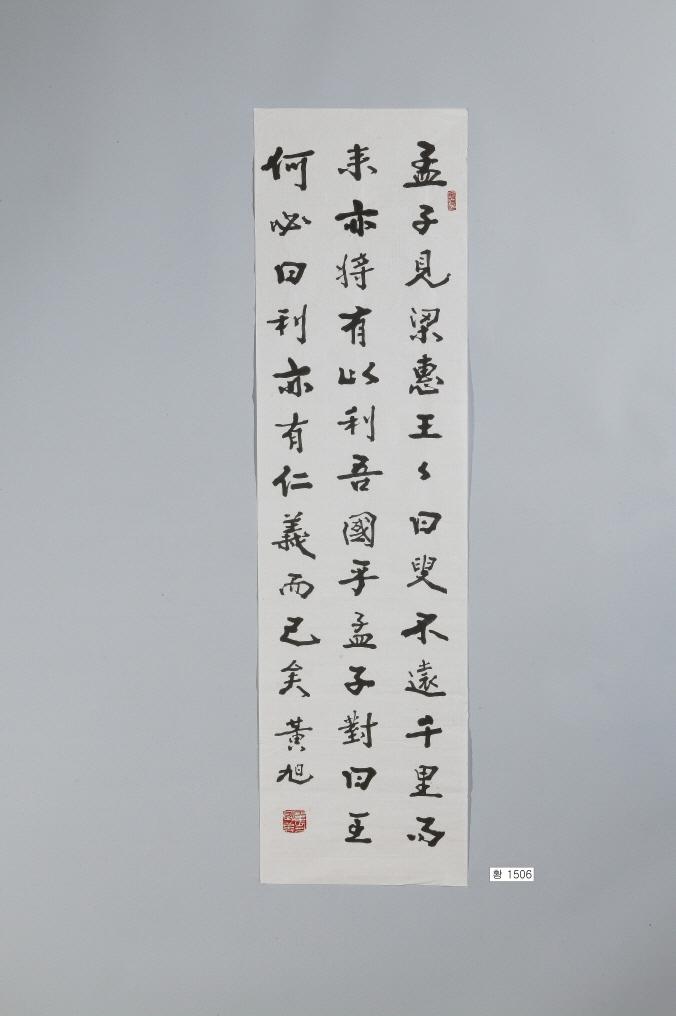 孟子見梁惠王々曰叟不遠千里而
来亦将有以利吾國乎孟子對曰王
何必曰利亦有仁義而已矣黃旭
황 1506